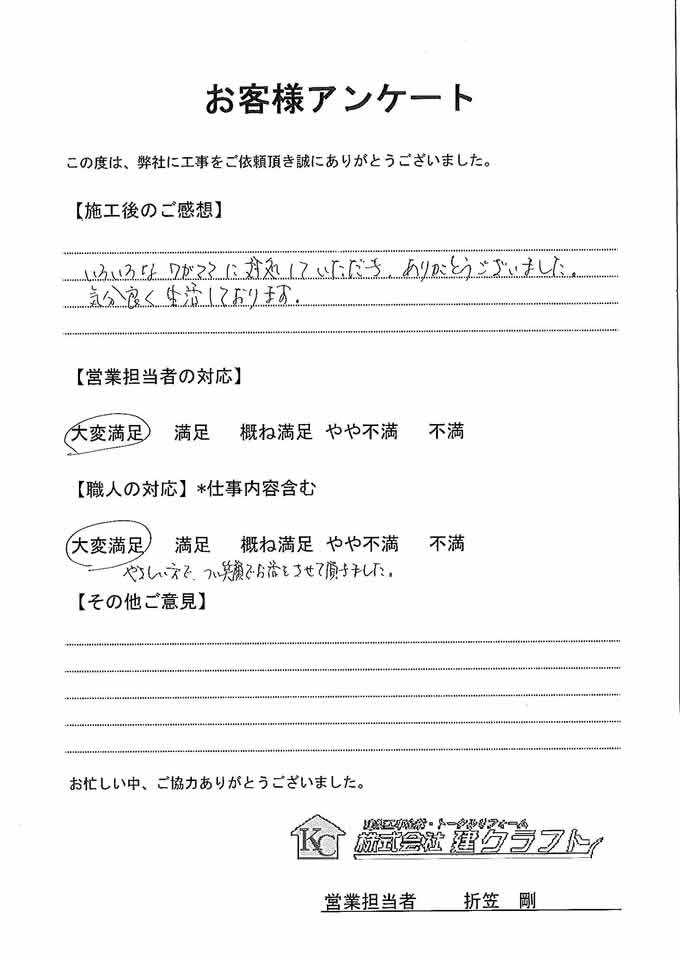 お客様アンケート
この度は、弊社に工事をご依頼頂き誠にありがとうございました。
【施工後のご感想】
いろいろな ワガママに 対処して いただき、ありがとうございました。
気分良く 生活しております。
【営業担当者の対応】
大変満足 満足 概ね満足 やや不満 不満
【職人の対応】*仕事内容含む
大変満足 満足 概ね満足 やや不満 不満
やさしい方で、つい笑顔でお話をさせて頂きました。
【その他ご意見】
お忙しい中、ご協力ありがとうございました。
KC
・トータルリフォーム
株式会社 建クラフト
営業担当者 折笠 剛